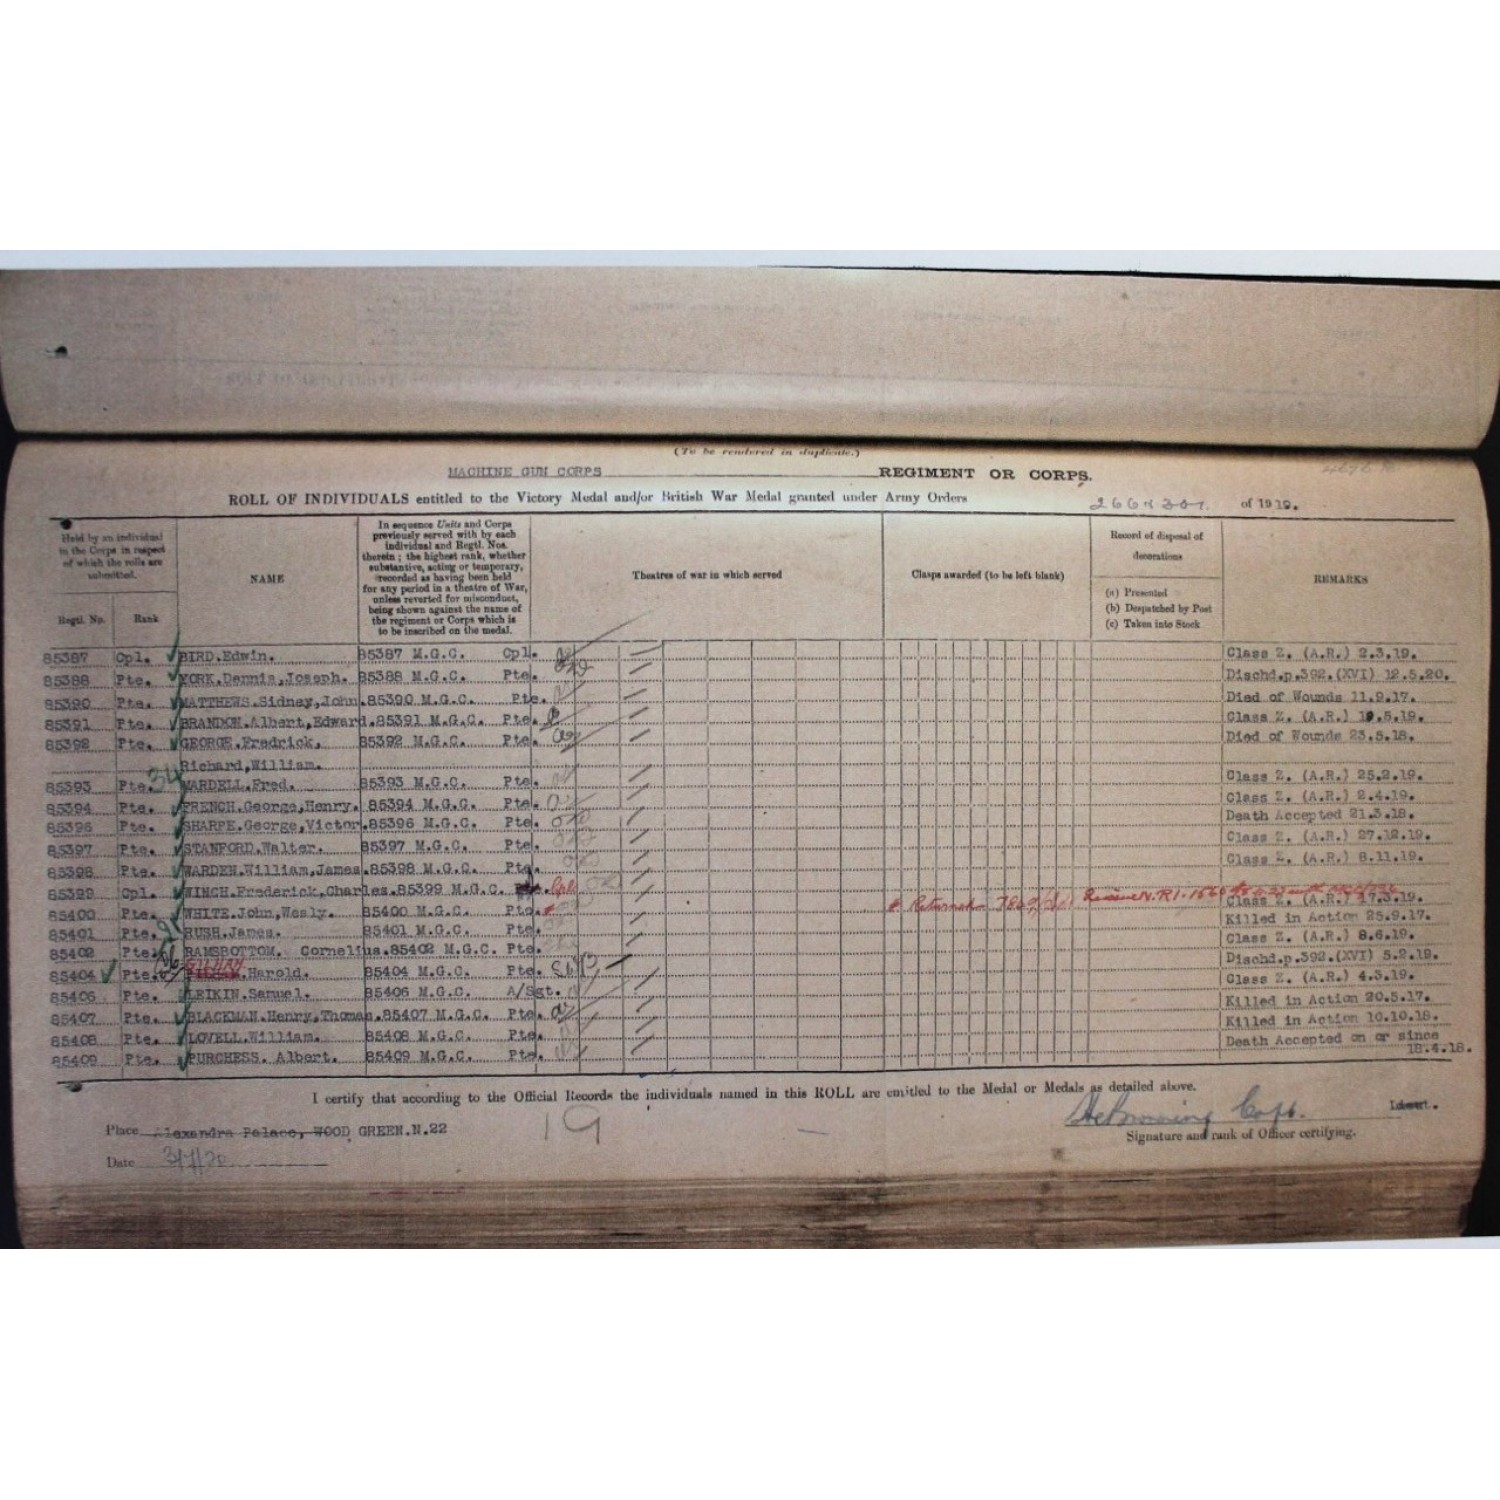 (To be rendered in duplicate.)
MACHINE GUN CORPS REGIMENT OR CORPS.
ROLL OF INDIVIDUALS entitled to the Victory Medal and/or British War Medal granted under Army Orders 266 & 301. of 1919.
Held by an individual in the Corps in respect of which the rolls are submitted.
Regtl. No. Rank
NAME
In sequence Units and Corps previously served with by each individual and Regtl. Nos. therein; the highest rank, whether substantive, acting or temporary, recorded as having been held for any period in a theatre of War, unless reverted for misconduct, being shown against the name of the regiment or Corps which is to be inscribed on the medal.
Theatres of war in which served
Clasps awarded (to be left blank)
Record of disposal of decorations
(a) Presented
(b) Despatched by Post
(c) Taken into Stock
REMARKS
85387 Cpl. BIRD.Edwin. 85387 M.G.C. Cpl. Class Z. (A.R.) 2.3.19.
85388 Pte. YORK.Dennis,Joseph. 85388 M.G.C. Pte. Dischd.p.392.(XVI) 12.5.20.
85390 Pte. MATTHEWS.Sidney,John 85390 M.G.C. Pte. Died of Wounds 11.9.17.
85391 Pte. BRANDON.Albert,Edward.85391 M.G.C. Pte. Class Z. (A.R.) 19.5.19.
85392 Pte. GEORGE.Fredrick, 85392 M.G.C. Pte. Died of Wounds 23.5.18.
Richard,William.
85393 Pte. WARDELL.Fred. 85393 M.G.C. Pte. Class Z. (A.R.) 25.2.19.
85394 Pte. FRENCH.George,Henry. 85394 M.G.C. Pte. Class Z. (A.R.) 2.4.19.
85396 Pte. SHARPE.George,Victor.85396 M.G.C. Pte. Death Accepted 21.3.18.
85397 Pte. STANFORD.Walter. 85397 M.G.C. Pte. Class Z. (A.R.) 27.12.19.
85398 Pte. WARDEN.William,James.85398 M.G.C. Pte. Class Z. (A.R.) 8.11.19.
85399 Cpl. WINCH.Frederick,Charles.85399 M.G.C. Cpl.
85400 Pte. WHITE.John,Wesly. 85400 M.G.C. Pte. Returned Class Z. (A.R.) 17.3.19.
85401 Pte. RUSH.James. 85401 M.G.C. Pte. Killed in Action 25.9.17.
85402 Pte. RAMSBOTTOM. Cornelius.85402 M.G.C. Pte. Class Z. (A.R.) 8.6.19.
85404 Pte. Harold. 85404 M.G.C. Pte. Dischd.p.392.(XVI) 5.2.19.
85406 Pte. LEIKIN.Samuel. 85406 M.G.C. A/Sgt. Class Z. (A.R.) 4.3.19.
85407 Pte. BLACKMAN.Henry,Thomas.85407 M.G.C. Pte. Killed in Action 20.5.17.
85408 Pte. LOVELL.William. 85408 M.G.C. Pte. Killed in Action 10.10.18.
85409 Pte. PURCHESS. Albert. 85409 M.G.C. Pte. Death Accepted on or since
18.4.18.
I certify that according to the Official Records the individuals named in this ROLL are entitled to the Medal or Medals as detailed above.
Place Alexandra Palace, WOOD GREEN.N.22
19
Capt.
Signature and rank of Officer certifying.
Date 3/7/20